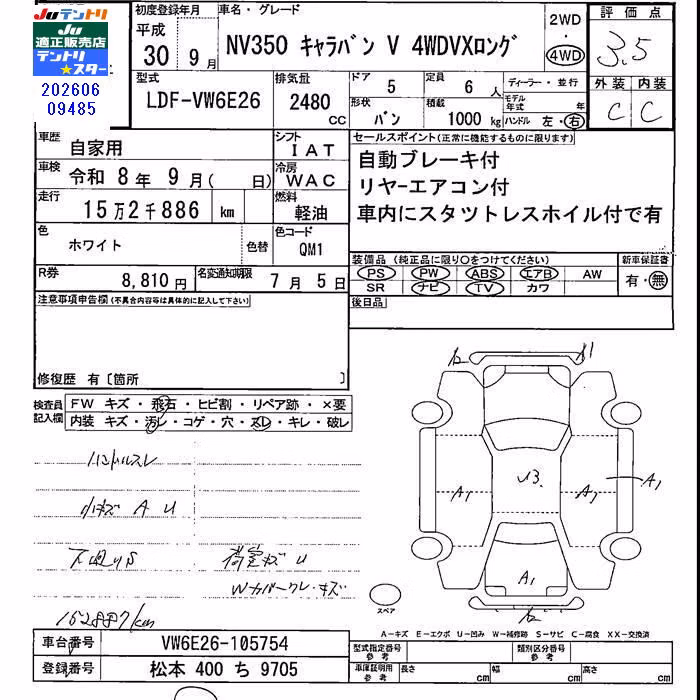 Juテントリ
Ju
適正販売店
テントリ
★スター
202606
09485
初度登録年月
平成
30 9月
車名・グレード
NV350 キャラバン V 4WDVXロング
2WD
・
4WD
評価点
3.5
外装 内装
C C
型式
LDF-VW6E26
排気量
2480
CC
ドア 5
定員 6 人
形状 バン
積載 1000 kg
ディーラー・並行
モデル年式 年
ハンドル 左・右
車歴 自家用
シフト IAT
車検 令和 8年 9月( 日)
冷房 WAC
走行 15万2千886 km
燃料 軽油
色 ホワイト
色替
色コード QM1
R券 8,810円
名変通知期限 7月 5日
セールスポイント(正常に機能するものに限ります)
自動ブレーキ付
リヤーエアコン付
車内にスタツトレスホイル付で有
装備品 (純正品に限り○をつけてください)
PS PW ABS エアB AW
SR ナビ TV カワ
新車保証書
有・無
後日品
注意事項申告欄(不具合内容等は具体的に記入して下さい)
修復歴 有〔箇所 〕
検査員記入欄
FW キズ・飛石・ヒビ割・リペア跡・×要
内装 キズ・汚レ・コゲ・穴・スレ・キレ・破レ
ハンドルスレ
小キズ A U
下廻りS
荷室キズ U
Wカバークレ・キズ
152887km
A1
U3
A1
A1
A1
スペア
A−キズ E−エクボ U−凹み W−補修跡 S−サビ C−腐食 XX−交換済
車台番号 VW6E26-105754
登録番号 松本 400 ち 9705
型式指定番号 参考
類別区分番号 参考
車庫証明用 参考
長さ cm
幅 cm
高さ cm